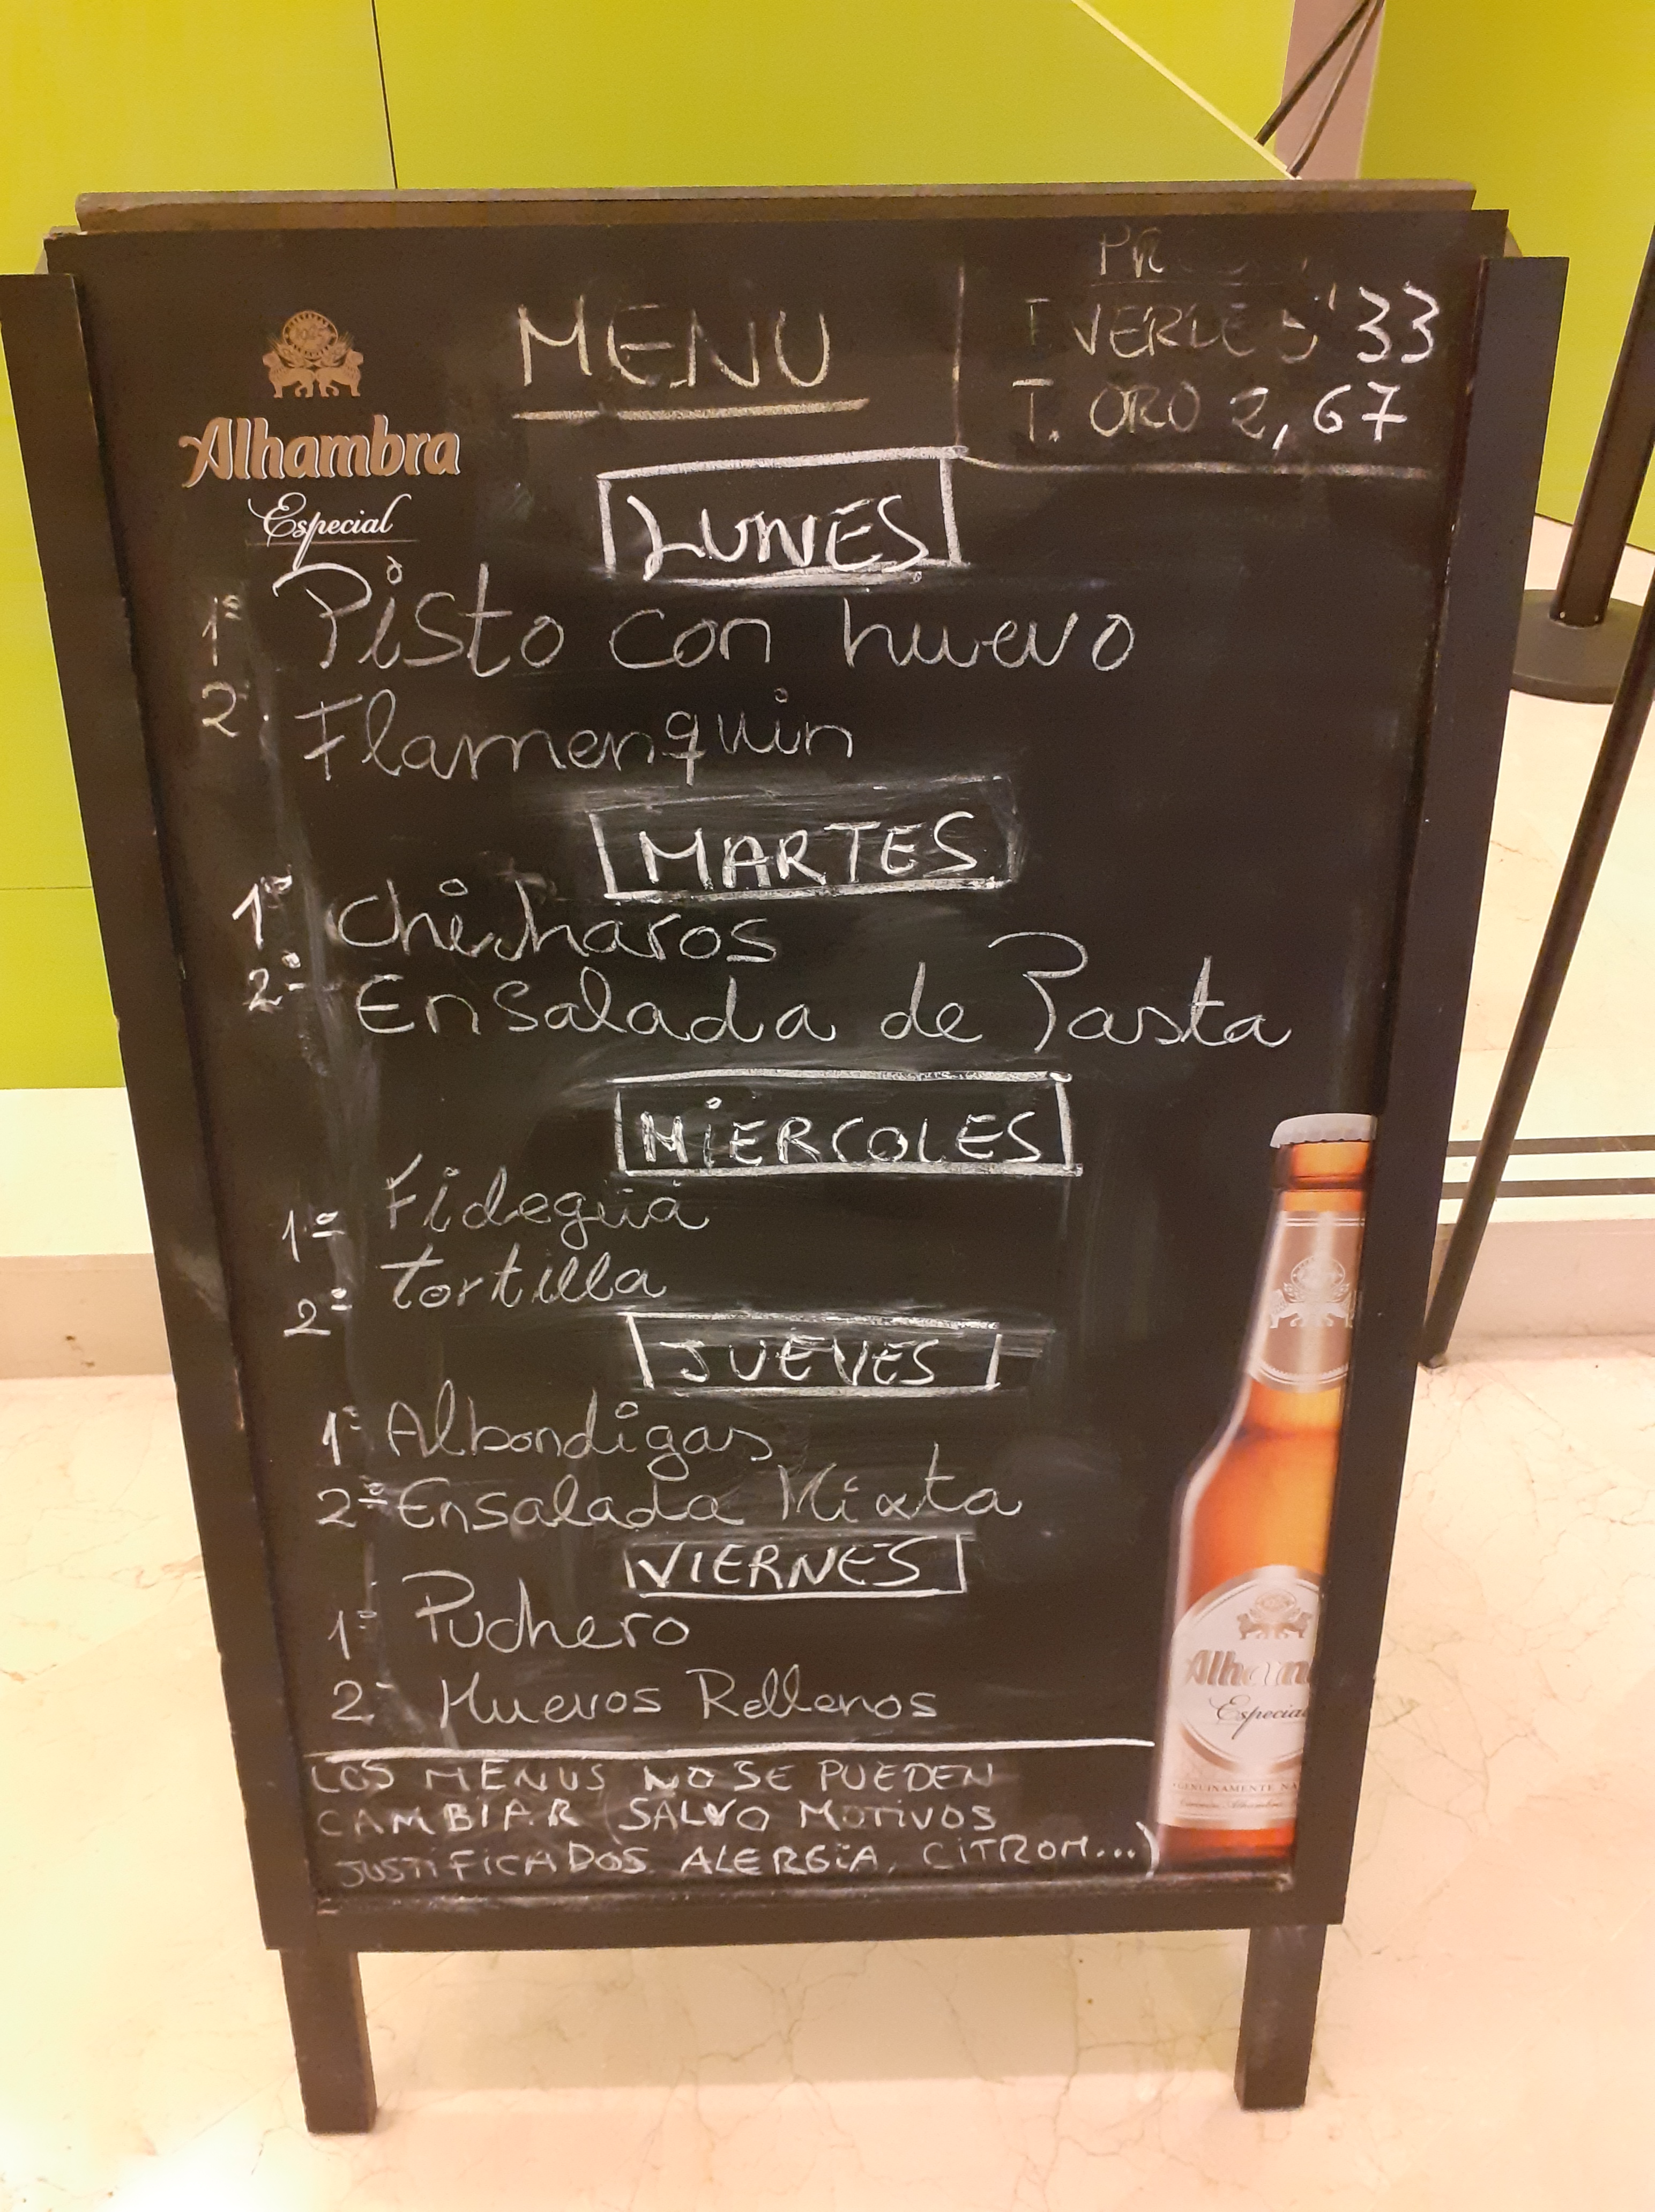 MENU
T. VERDE 5'33
T. ORO 2,67
Alhambra
Especial
LUNES
1º Pisto con huevo
2º Flamenquin
MARTES
1º Chicharos
2º Ensalada de Pasta
MiERCOLES
1º Fidegüá
2º tortilla
JUEVES
1º Albondigas
2º Ensalada Mixta
VIERNES
1º Puchero
2º Huevos Rellenos
LOS MENUS NO SE PUEDEN
CAMBIAR (SALVO MOTIVOS
JUSTIFICADOS. ALERGIA, CITROM...)
Alham
Especial
GENUINAMENTE NA